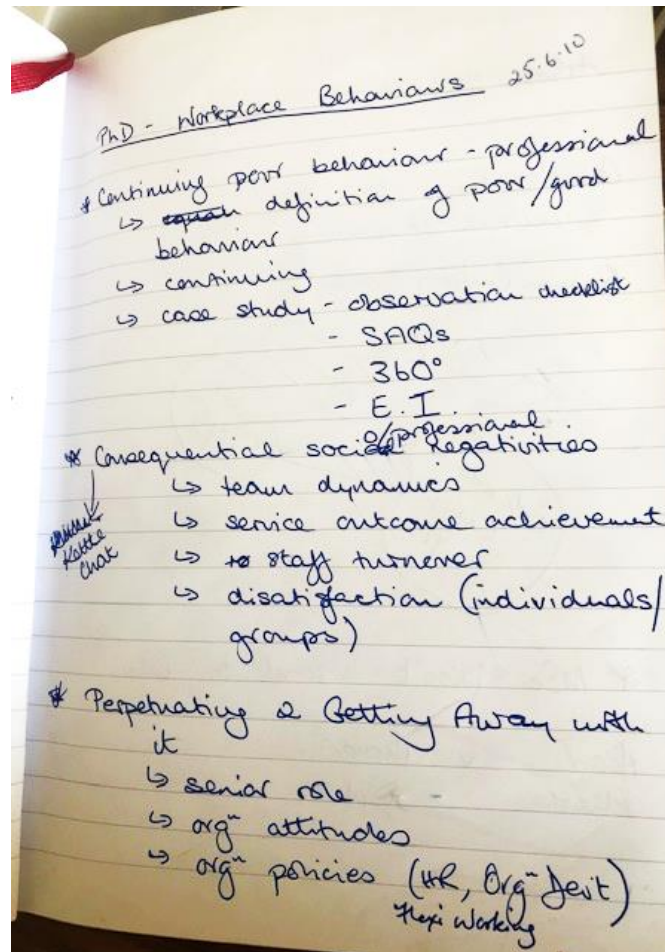 PhD - Workplace Behaviours 25.6.10
* Continuing poor behaviour - professional
↳ definition of poor/good
behaviour
↳ continuing
↳ case study - observation checklist
- SAQs
- 360°
- E.I.
o/professional
* Consequential social Negativities
↳ team dynamics
↳ service outcome achievement
Kettle
Chat
↳ staff turnover
↳ disatisfaction (individuals/
groups)
* Perpetuating & Getting Away with
it
↳ senior role -
↳ orgⁿ attitudes
↳ orgⁿ policies (HR, Orgⁿ Devt)
Flexi Working